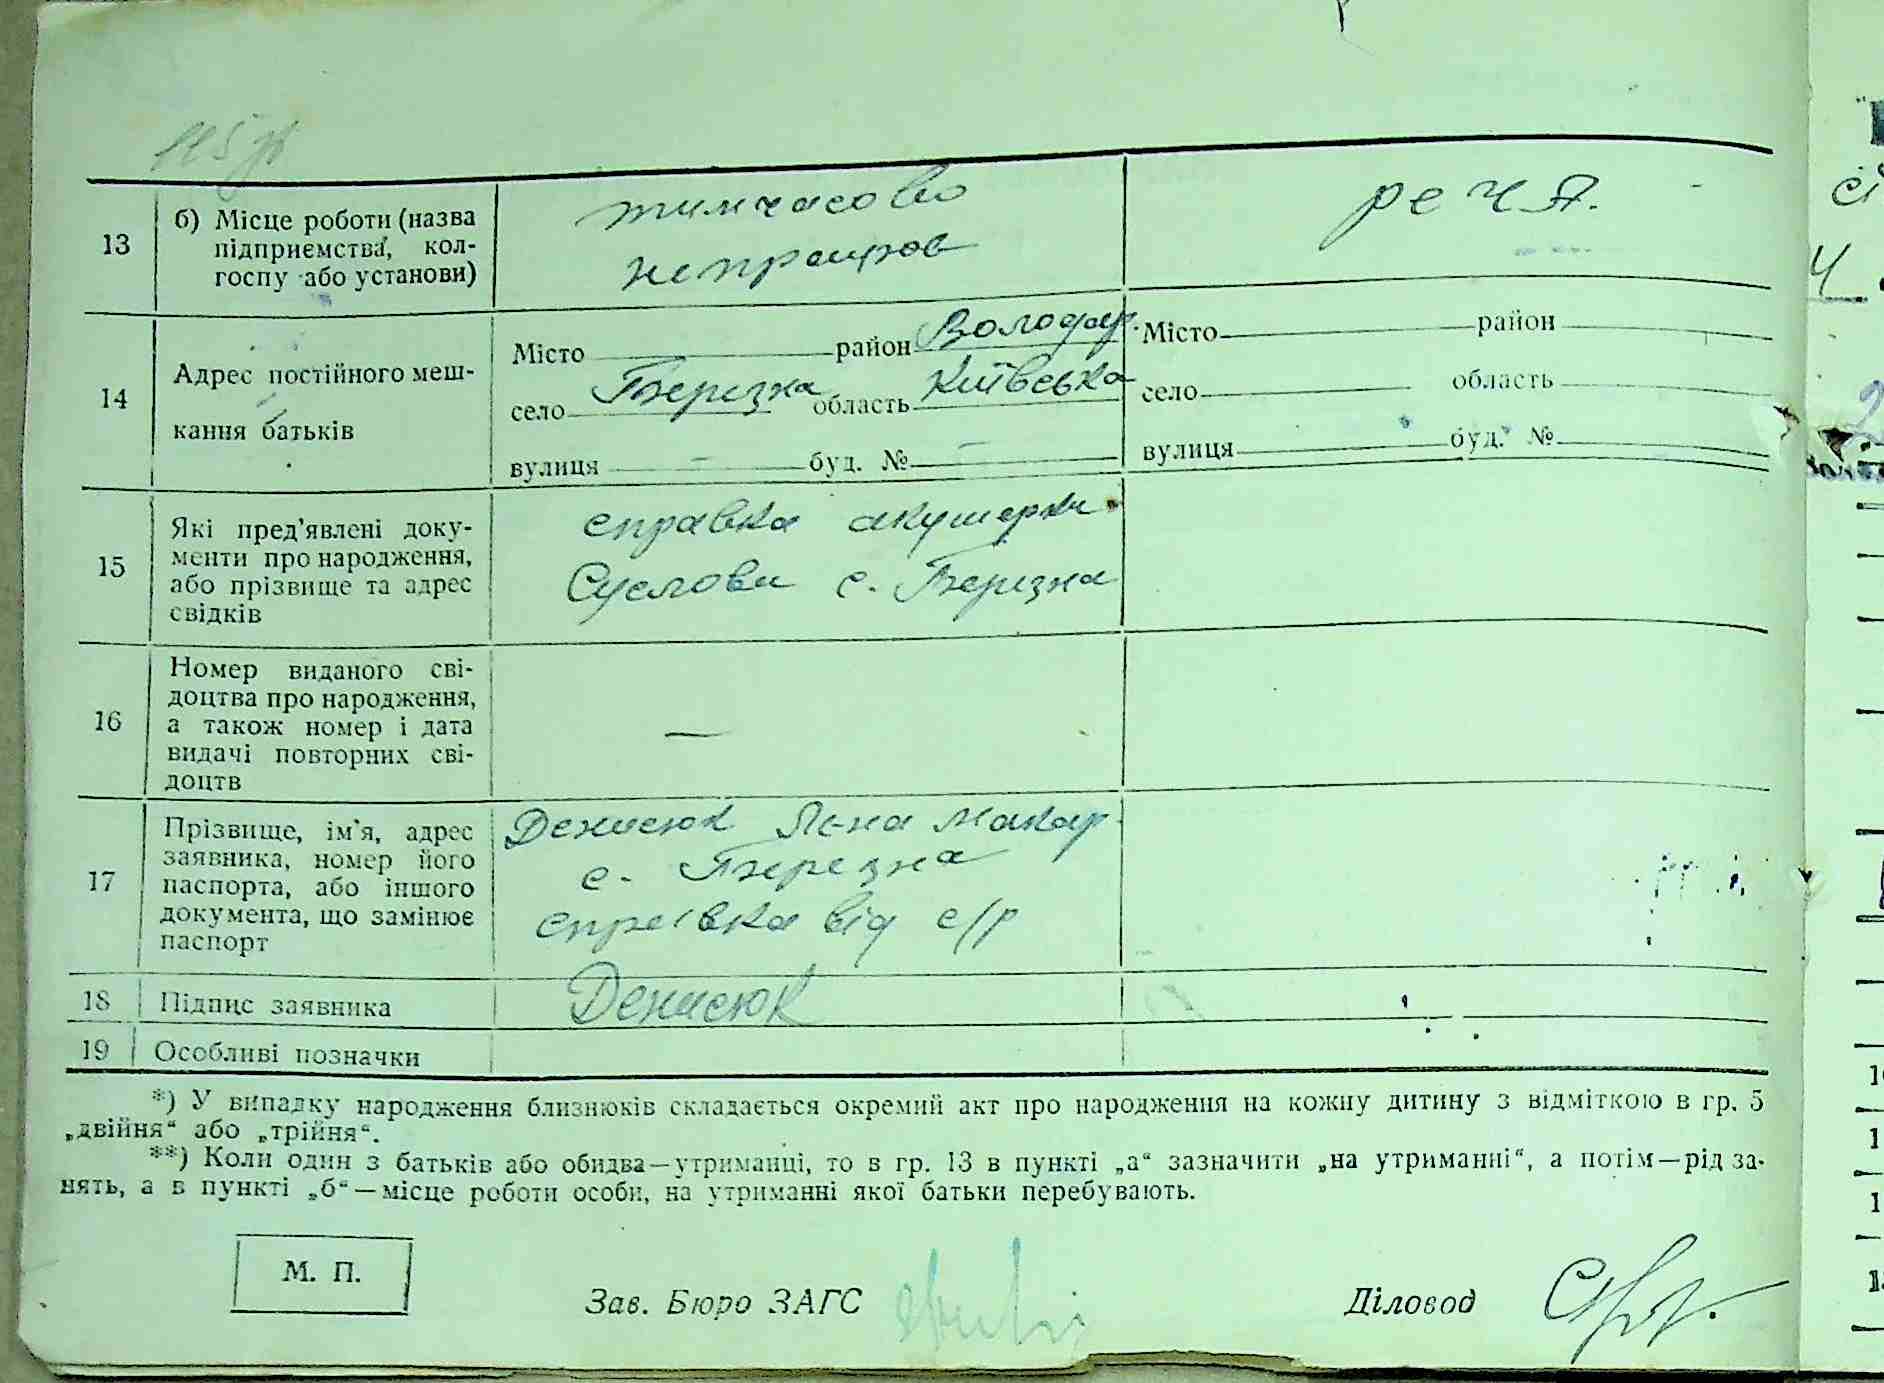 13
б) Місце роботи (назва
підприємства, кол-
госпу або установи)
тимчасово
непрацюв
речя.
14
Адрес постійного меш-
кання батьків
Місто район Володар.
село Березна область Київська
вулиця — буд. № —
Місто район
село область
вулиця буд. №
15
Які пред'явлені доку-
менти про народження,
або прізвище та адрес
свідків
справка акушерки
Суслови с. Березна
16
Номер виданого сві-
доцтва про народження,
а також номер і дата
видачі повторних сві-
доцтв
—
17
Прізвище, ім'я, адрес
заявника, номер його
паспорта, або іншого
документа, що замінює
паспорт
Денисюк Макар.
с. Березна
справка від с/р
18
Підпис заявника
Денисюк
19
Особливі позначки
*) У випадку народження близнюків складається окремий акт про народження на кожну дитину з відміткою в гр. 5
„двійня“ або „трійня“.
**) Коли один з батьків або обидва—утриманці, то в гр. 13 в пункті „а“ зазначити „на утриманні“, а потім—рід за-
нять, а в пункті „б“—місце роботи особи, на утриманні якої батьки перебувають.
М. П.
Зав. Бюро ЗАГС
Діловод